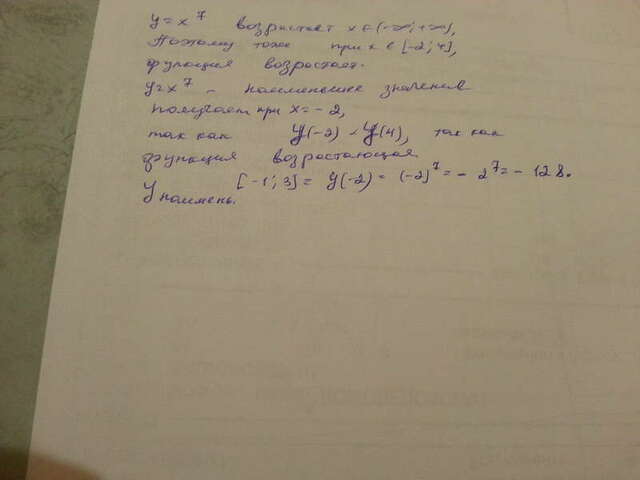 y = x⁷ возрастает x ∈ (-∞; +∞),
Поэтому тоже при x ∈ [-2; 4],
функция возрастает.
y = x⁷ - наименьшее значение
получает при x = -2,
так как y(-2) < y(4), так как
функция возрастающая
y наимень. [-1; 3] = y(-2) = (-2)⁷ = - 2⁷ = - 128.